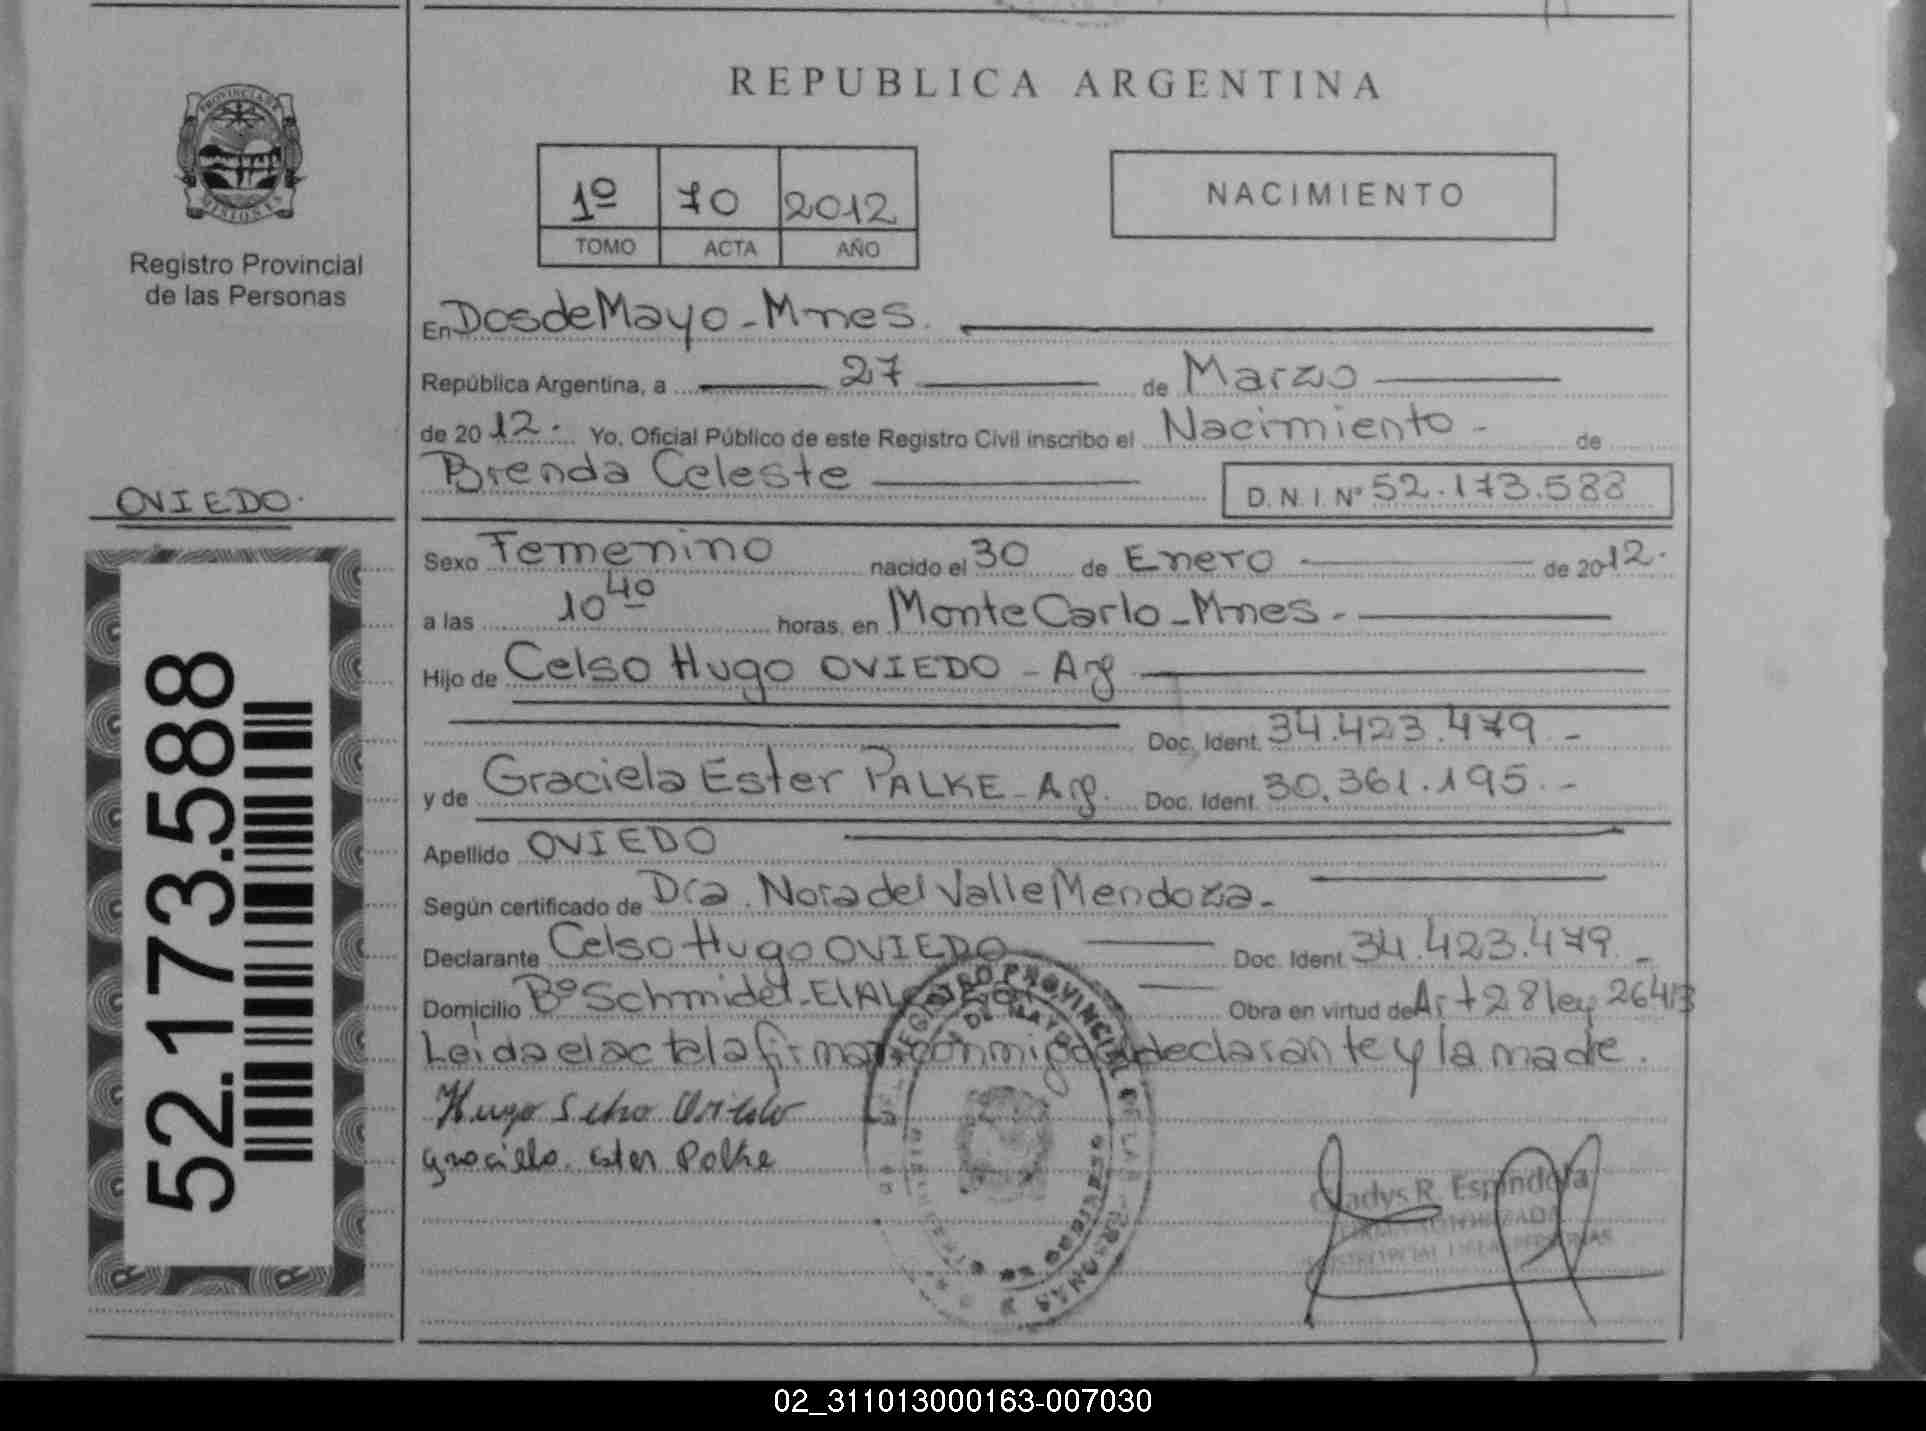 REPUBLICA ARGENTINA
PROVINCIA DE
MISIONES
Registro Provincial
de las Personas
1º 70 2012
TOMO ACTA AÑO
NACIMIENTO
En Dos de Mayo - Mnes.
República Argentina, a 27 de Marzo
de 2012. Yo, Oficial Público de este Registro Civil inscribo el Nacimiento - de
Brenda Celeste D.N.I. Nº 52.173.588
OVIEDO.
52.173.588
Sexo Femenino nacido el 30 de Enero de 2012.
a las 10 40 horas, en Monte Carlo - Mnes. -
Hijo de Celso Hugo OVIEDO - Arg
Doc. Ident. 34.423.479 -
y de Graciela Ester PALKE - Arg. Doc. Ident. 30.361.195. -
Apellido OVIEDO
Según certificado de Dra. Nora del Valle Mendoza -
Declarante Celso Hugo OVIEDO Doc. Ident. 34.423.479 -
Domicilio Bº Schmidel - El Obra en virtud de Art 28 ley 26413
Leida el acta la firman conmigo declarante y la madre.
Hugo
Graciela Ester Palke
REGISTRO PROVINCIAL DE LAS PERSONAS
DE MAYO
Gladys R. Espíndola
02_311013000163-007030